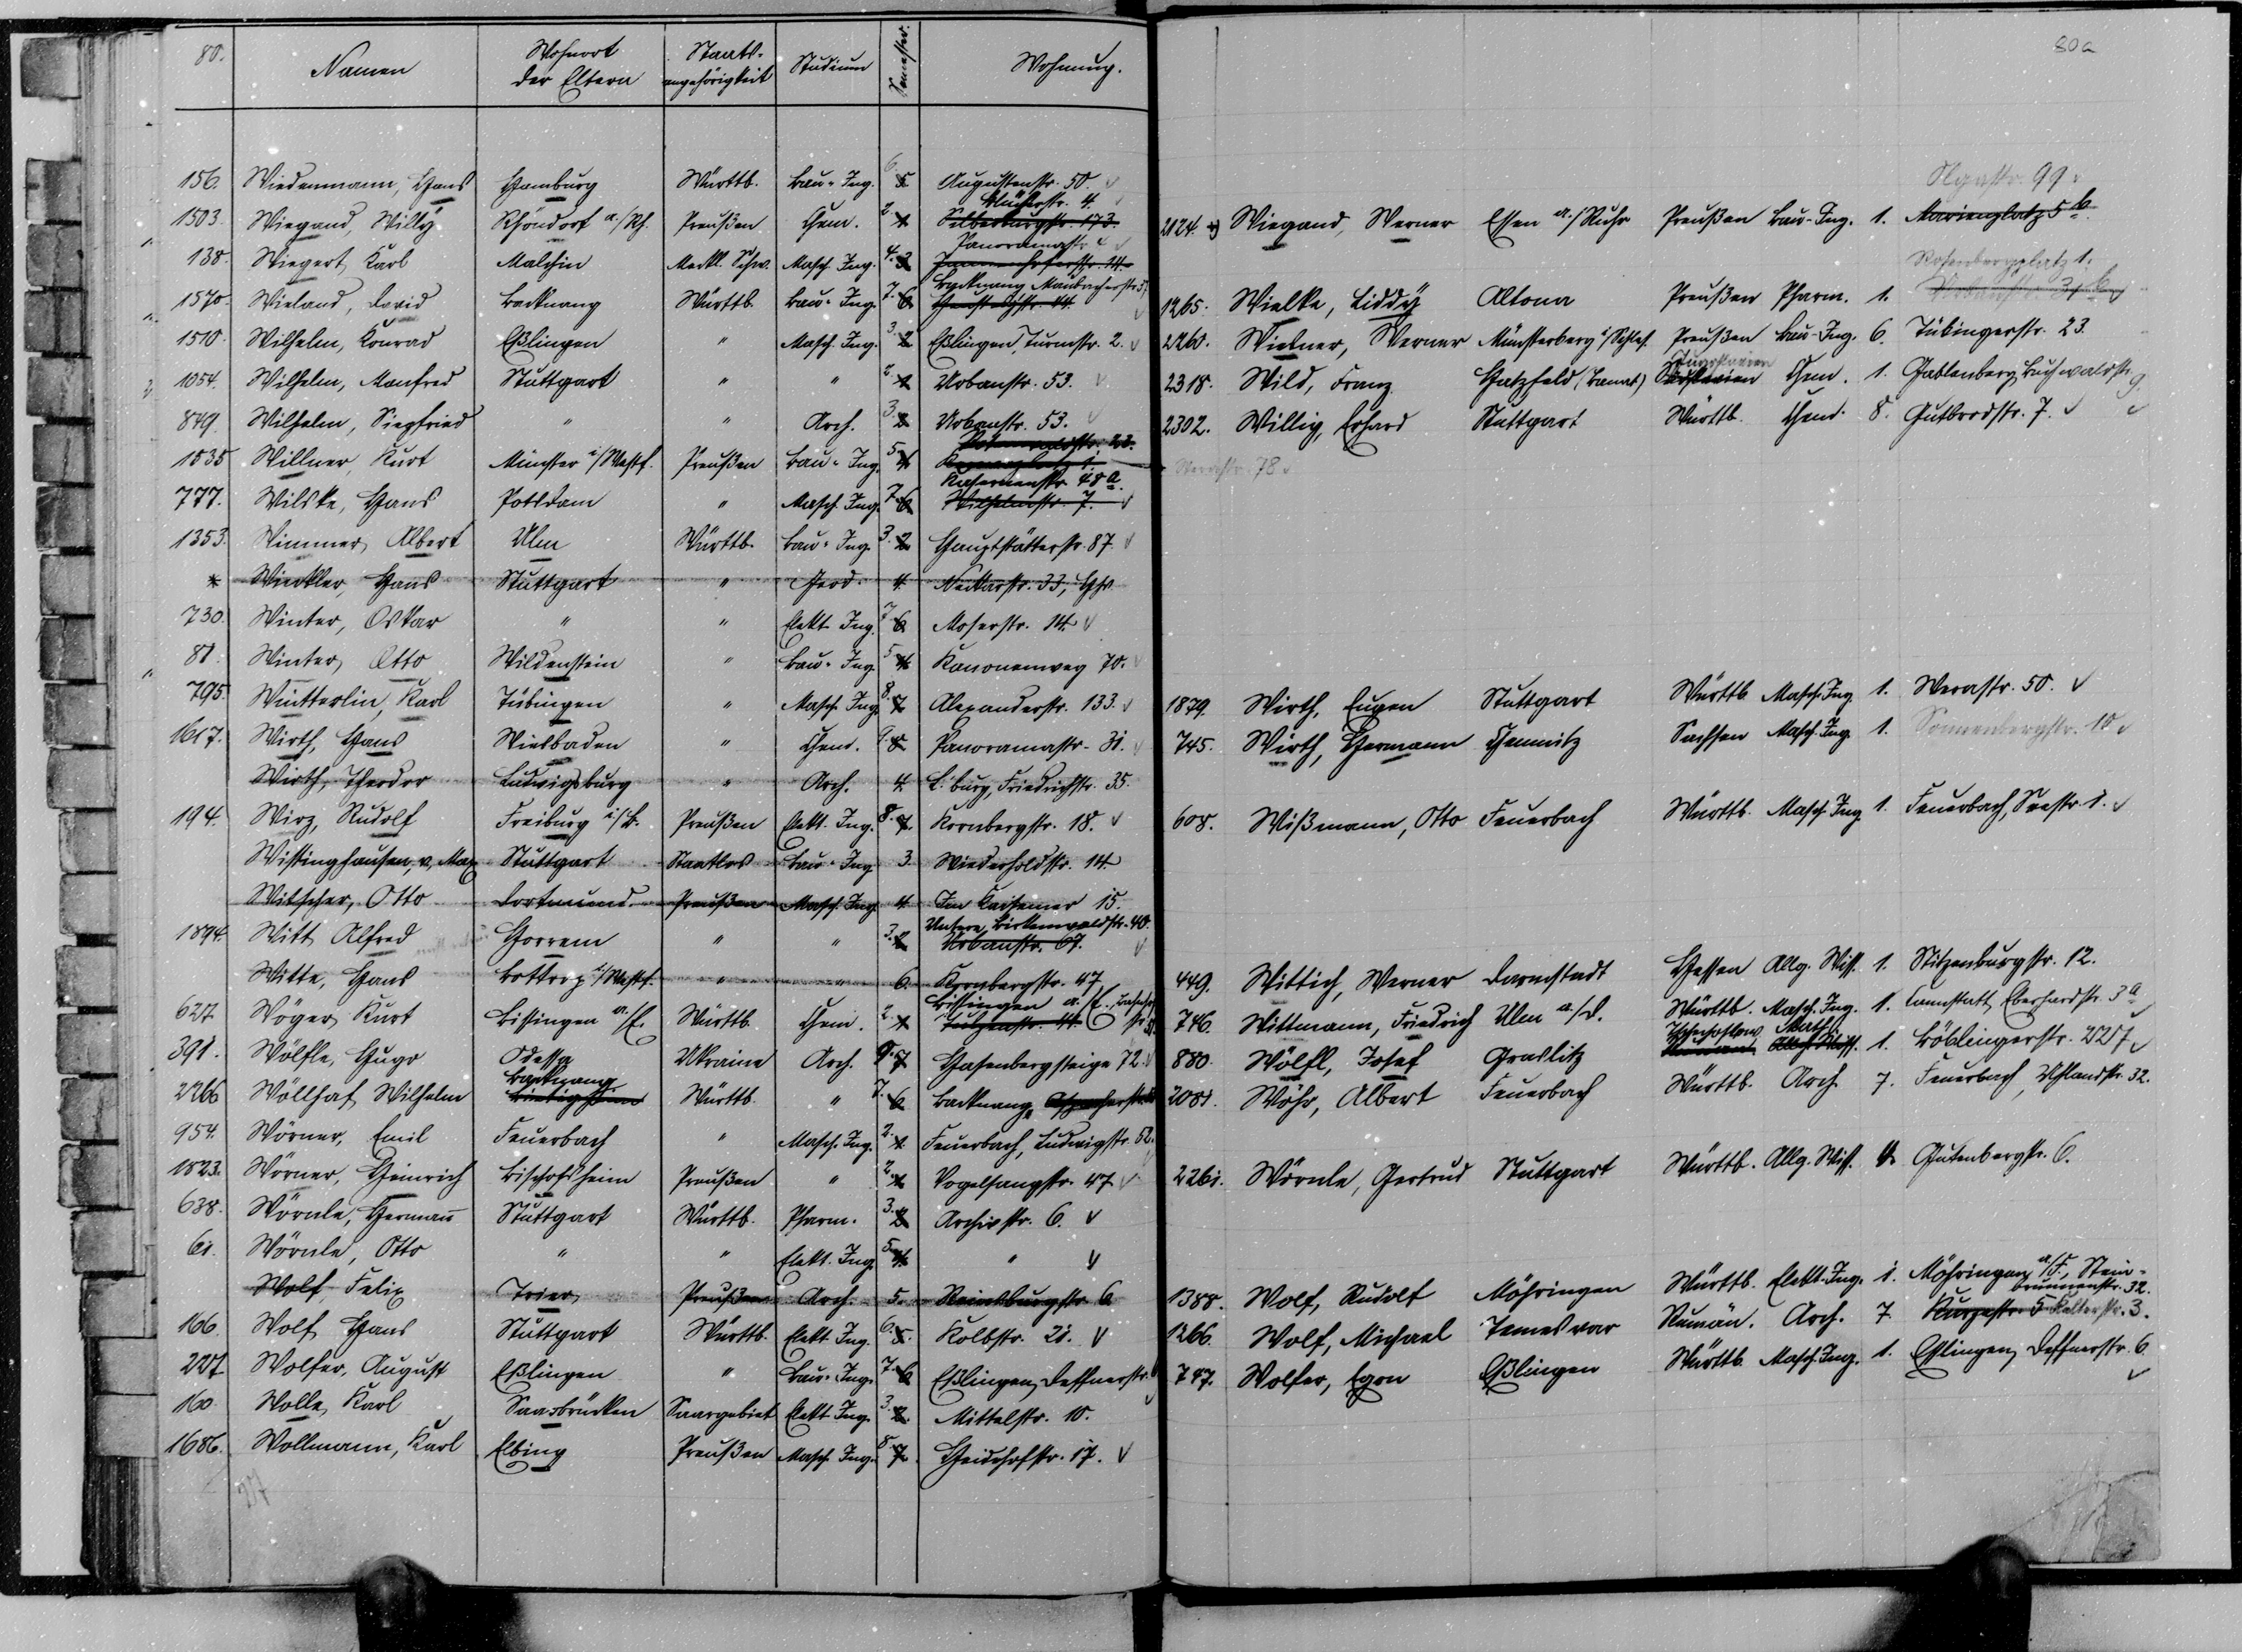 80. Namen Wohnort der Eltern Staats-angehörigkeit Studium Semester. Wohnung.
156. Wiedenmann, Hans Hamburg Württb. Bau-Ing. 6. 5. Augustenstr. 50.
1503. Wiegand, Willy Rhöndorf a./Rh. Preußen Chem. 2. 1. Silberburgstr. 173.
138. Wiegert, Karl Malchin Meckl. Schw. Masch. Ing. 4. 3. Panoramastr. 4
1570. Wieland, David Backnang Württb. Bau-Ing. 7. 6. Backnang, Maubacherstr.
1510. Wilhelm, Konrad Eßlingen " Masch. Ing. 3. 2. Eßlingen, Turmstr. 2.
1054. Wilhelm, Manfred Stuttgart " " 2. 1. Urbanstr. 53.
849. Wilhelm, Siegfried " " Arch. 3. 2. Urbanstr. 53.
1535 Willner, Kurt Münster i/Westf. Preußen Bau-Ing. 5. 4.
777. Wilske, Hans Potsdam " Masch. Ing. 7. 6. Kasernenstr. 48a. Wilhelmstr. 7.
1353. Wimmer, Albert Ulm Württb. Bau-Ing. 3. 2. Hauptstätterstr. 87.
* Winkler, Hans Stuttgart " Geod. 4. Neckarstr. 33,
730. Winter, Oskar " " Elekt. Ing. 7. 6. Moserstr. 14.
81. Winter, Otto Wildenstein " Bau-Ing. 5. 4. Kanonenweg 70.
795. Wintterlin, Karl Tübingen " Masch. Ing. 8. 7. Alexanderstr. 133.
1617. Wirth, Hans Wiesbaden " Chem. 9. 8. Panoramastr. 31.
Wirth, Theodor Ludwigsburg " Arch. 4. L.burg, Friedrichstr. 35.
194. Wirz, Rudolf Freiburg i/B. Preußen Elekt. Ing. 8. 7. Kornbergstr. 18.
Wistinghausen, v. Max Stuttgart Staatlos Bau-Ing. 3. Wiederholdstr. 14.
Witscher, Otto Dortmund Preußen Masch. Ing. 4. Im Kaisemer 15.
1894. Witt, Alfred Horrem " " 3. 2. Untere Birkenwaldstr. 40. Urbanstr. 67.
Witte, Hans Bottrop i/Westf. " " 6. Kornbergstr. 47
627 Wöger, Kurt Bissingen a/E. Württb. Chem. 2. 1. Bissingen a./E.,
391. Wölfle, Hugo Odessa Ukraine Arch. 8. 7 Hasenbergsteige 72.
2266 Wöllhaf, Wilhelm Backnang Bietigheim Württb. " 7. 6. Backnang,
954. Wörner, Emil Feuerbach " Masch. Ing. 2. 1. Feuerbach, Ludwigstr. 52.
1823. Wörner, Heinrich Bischofsheim Preußen " 2. 1. Vogelsangstr. 47
638. Wörnle, Hermann Stuttgart Württb. Pharm. 3. 2. Archivstr. 6.
61. Wörnle, Otto " " Elekt. Ing. 5. 4. "
Wolf, Felix Trier Preußen Arch. 5. Reinsburgstr. 6
166. Wolf, Hans Stuttgart Württb. Elekt. Ing. 6. 5. Kolbstr. 21.
227 Wolfer, August Eßlingen " Bau-Ing. 7. 6. Eßlingen, Deffnerstr.
160. Wolle, Karl Saarbrücken Saargebiet Elekt. Ing. 3. 2. Mittelstr. 10.
1686. Wollmann, Karl Elbing Preußen Masch. Ing. 8. 7. Heidehofstr. 17.
227
80a
Olgastr. 99
2124. Wiegand, Werner Essen a./Ruhr Preußen Bau-Ing. 1. Marienplatz 5b.
Rosenbergplatz 1.
1265. Wielke, Liddy Altona Preußen Pharm. 1.
2260. Wiesner, Werner Münsterberg i/Schles. Preußen Bau-Ing. 6. Tübingerstr. 23.
2318. Wild, Franz Hatzfeld (Banat) Jugoslavien Chem. 1. Gablenberg, Buchwaldstr. 9.
2302. Willig, Erhard Stuttgart Württb. Chem. 8. Gutbrodstr. 7.
Werastr. 78
1879. Wirth, Eugen Stuttgart Württb. Masch. Ing. 1. Werastr. 50.
745. Wirth, Hermann Chemnitz Sachsen Masch. Ing. 1. Sonnenbergstr. 10
608. Wißmann, Otto Feuerbach Württb. Masch. Ing. 1. Feuerbach, Seestr. 1.
449. Wittich, Werner Darmstadt Hessen Allg. Wiss. 1. Stitzenburgstr. 12.
746. Wittmann, Friedrich Ulm a/D. Württb. Masch. Ing. 1. Cannstatt, Eberhardstr. 3a
880. Wölfl, Josef Graslitz Tschechoslow. Math. 1. Böblingerstr. 227
2081. Wöhr, Albert Feuerbach Württb. Arch. 7. Feuerbach, Uhlandstr. 32.
2261. Wörnle, Gertrud Stuttgart Württb. Allg. Wiss. Gutenbergstr. 6.
1388. Wolf, Rudolf Möhringen Württb. Elekt. Ing. 1. Möhringen a/F., Steinbrunnenstr. 32.
1266. Wolf, Michael Temesvar Rumän. Arch. 7. Kurzestr. 5 Kelterstr. 3.
747. Wolfer, Egon Eßlingen Württb. Masch. Ing. 1. Eßlingen, Deffnerstr. 6.